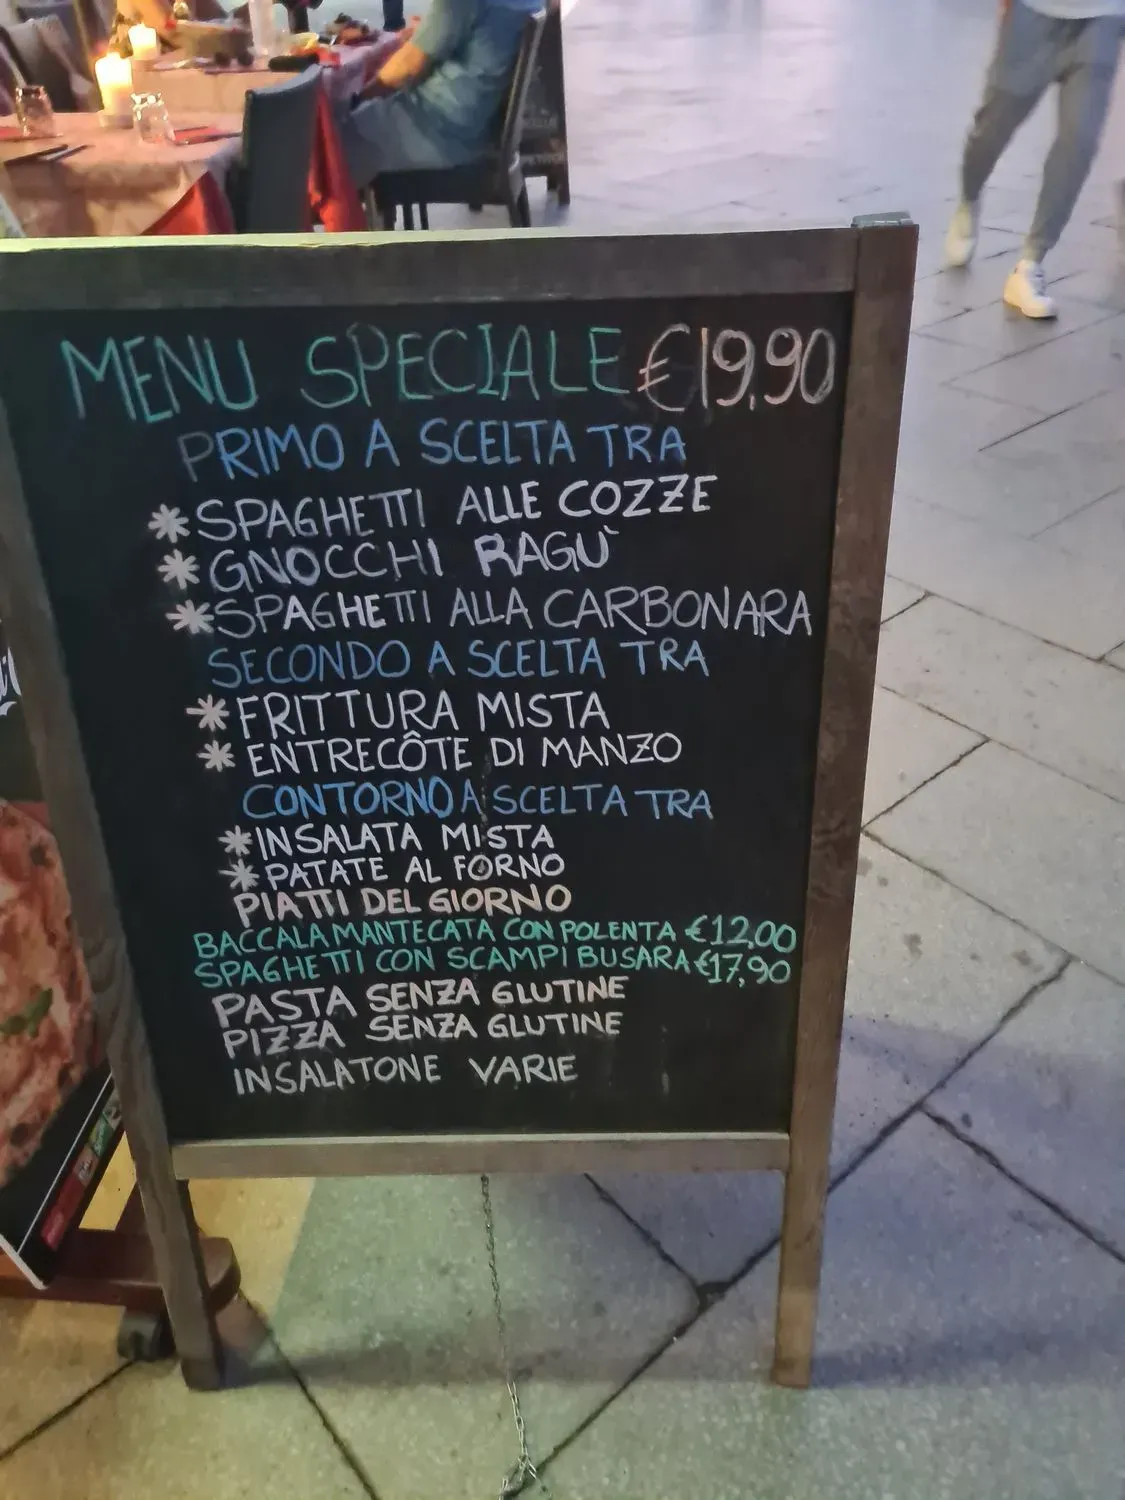 MENU SPECIALE €19,90
PRIMO A SCELTA TRA
*SPAGHETTI ALLE COZZE
*GNOCCHI RAGÙ
*SPAGHETTI ALLA CARBONARA
SECONDO A SCELTA TRA
*FRITTURA MISTA
*ENTRECÔTE DI MANZO
CONTORNO A SCELTA TRA
*INSALATA MISTA
*PATATE AL FORNO
PIATTI DEL GIORNO
BACCALA MANTECATA CON POLENTA €12,00
SPAGHETTI CON SCAMPI BUSARA €17,90
PASTA SENZA GLUTINE
PIZZA SENZA GLUTINE
INSALATONE VARIE